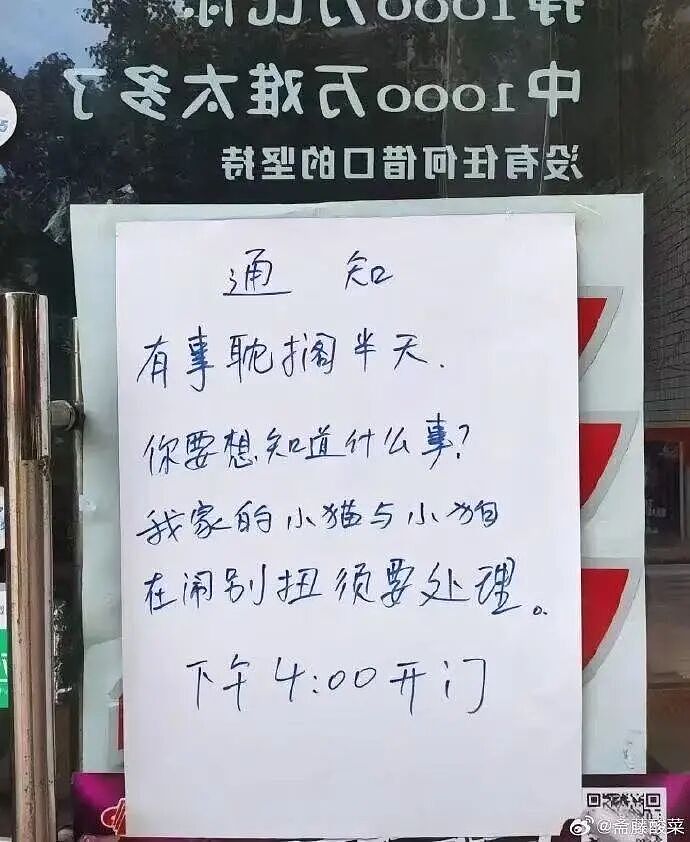 挣1000万比你
中1000万难太多了
没有任何借口的坚持
通 知
有事耽搁半天.
你要想知道什么事?
我家的小猫与小狗
在闹别扭须要处理。
下午4:00开门
@斋藤酸菜